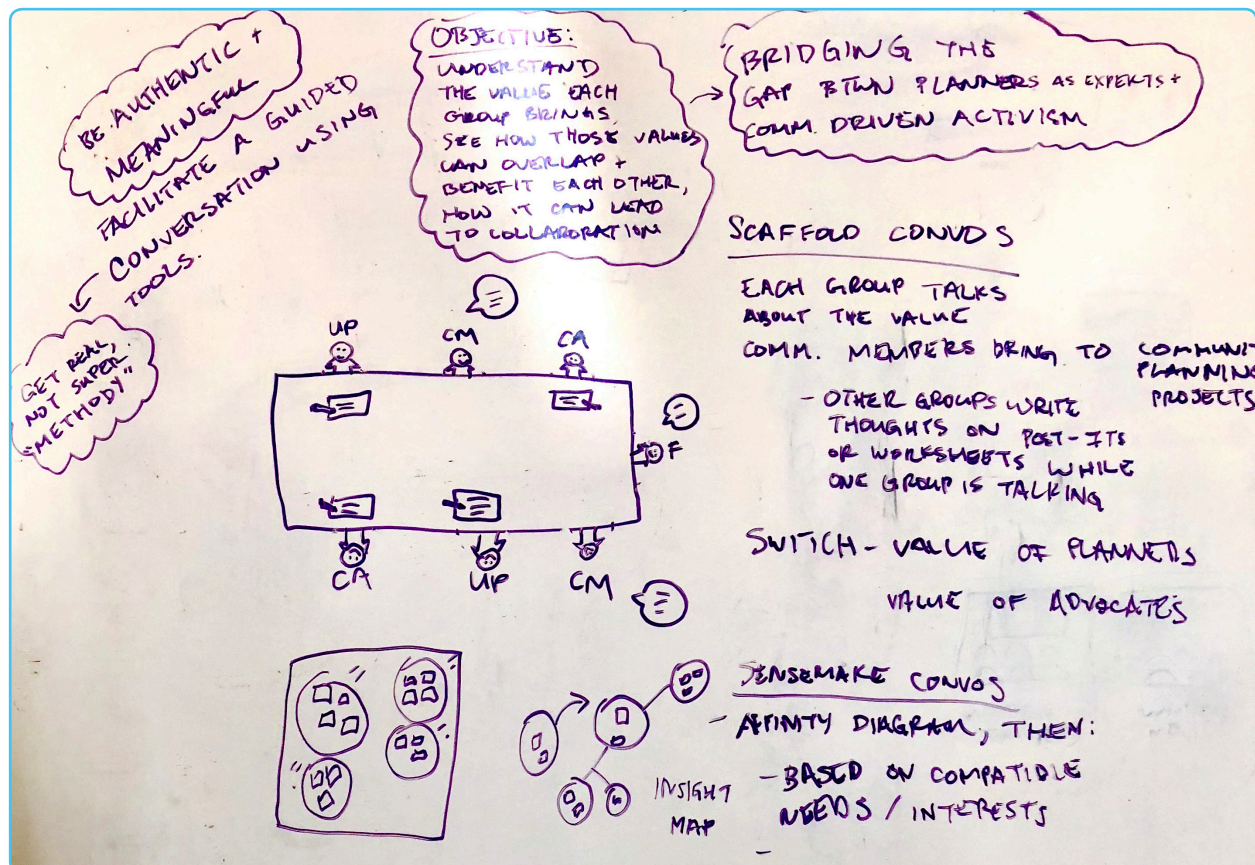 BE AUTHENTIC +
MEANINGFUL
FACILITATE A GUIDED
CONVERSATION USING
TOOLS.
GET REAL,
NOT SUPER
"METHODY"
OBJECTIVE:
UNDERSTAND
THE VALUE EACH
GROUP BRINGS,
SEE HOW THOSE VALUES
CAN OVERLAP +
BENEFIT EACH OTHER,
HOW IT CAN LEAD
TO COLLABORATION
BRIDGING THE
GAP BTWN PLANNERS AS EXPERTS +
COMM. DRIVEN ACTIVISM
UP
CM
CA
F
CA
UP
CM
SCAFFOLD CONVOS
EACH GROUP TALKS
ABOUT THE VALUE
COMM. MEMBERS BRING TO COMMUNIT
PLANNING
PROJECTS
- OTHER GROUPS WRITE
THOUGHTS ON POST-ITS
OR WORKSHEETS WHILE
ONE GROUP IS TALKING
SWITCH - VALUE OF PLANNERS
VALUE OF ADVOCATES
INSIGHT
MAP
SENSEMAKE CONVOS
- AFFINITY DIAGRAM, THEN:
- BASED ON COMPATIBLE
NEEDS / INTERESTS
-